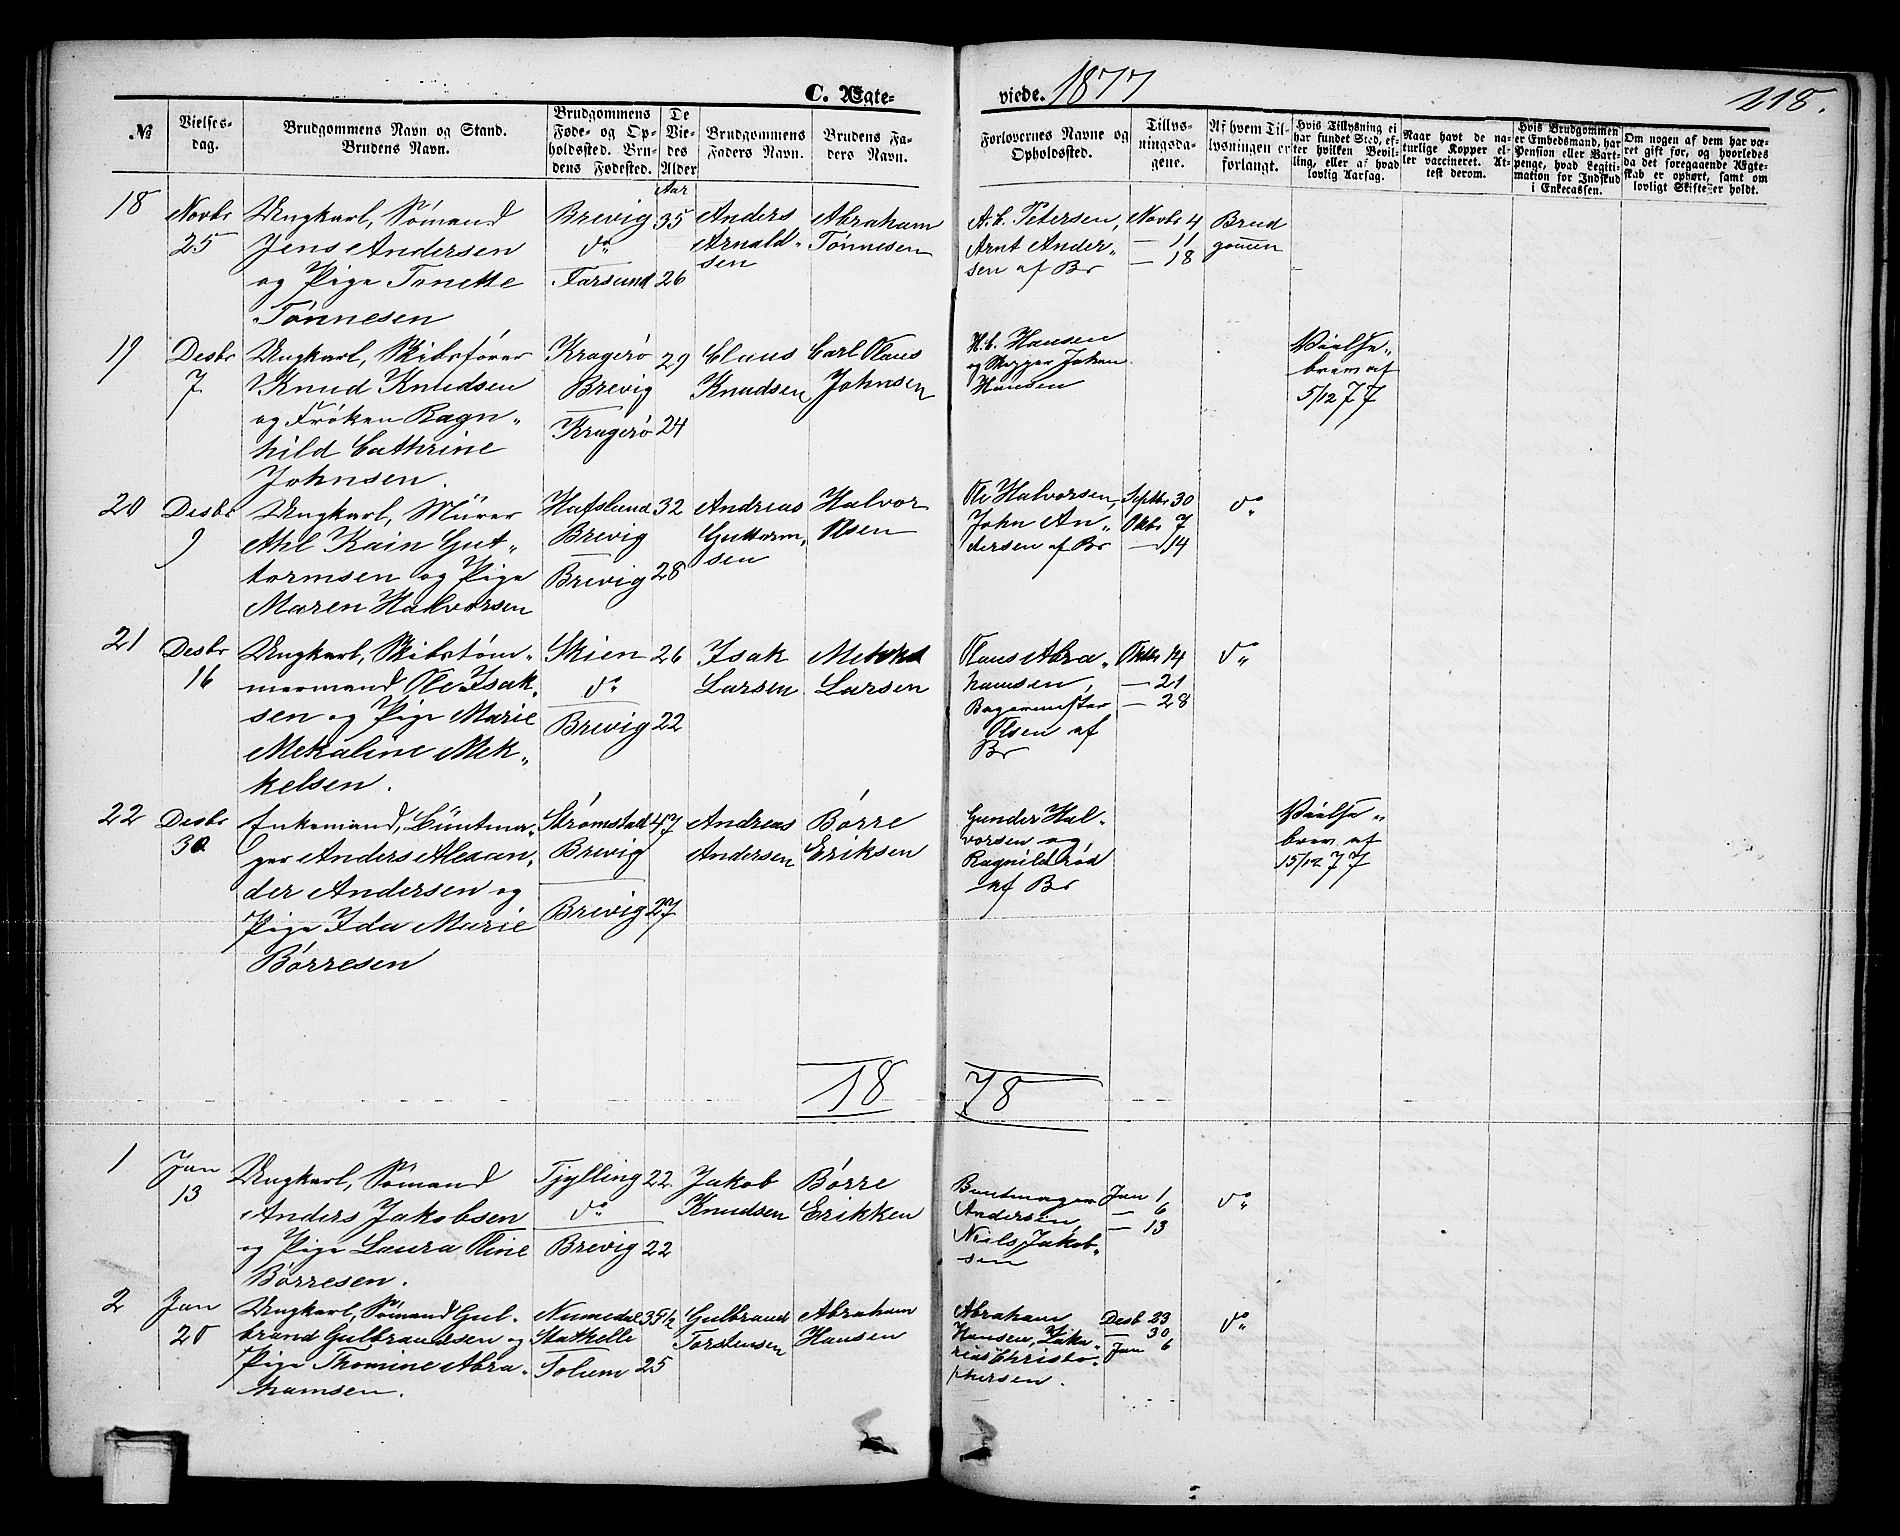 C. Ægte-
viede. 1877
218.
№
Vielses-
dag.
Brudgommens Navn og Stand.
Brudens Navn.
Brudgommens
Føde- og Op-
holdssted. Bru-
dens Fødested.
De
Vie-
des
Alder
Brudgommens
Faders Navn.
Brudens Fa-
ders Navn.
Forlovernes Navne og
Opholdssted.
Tillys-
ningsda-
gene.
Af hvem Til-
lysningen er
forlangt.
Hvis Tillysning ei
har fundet Sted, ef-
ter hvilken Bevil-
ling, eller af hvad
lovlig Aarsag.
Naar havt de na-
turlige Kopper el-
ler vaccineret. At-
test derom.
Hvis Brudgommen
er Embedsmand, har
Pension eller Vart-
penge, hvad Legiti-
mation for Indskud
i Enkecassen.
Om nogen af dem har væ-
ret gift før, og hvorledes
da det foregaaende Ægte-
skab er ophørt, samt om
lovligt Skifte er holdt.
Aar
18
Novbr
25
Ungkarl, Sømand
Jens Andersen
og Pige Tonette
Tønnesen
Brevig
do
Farsund
35
26
Anders
Arnald-
sen
Abraham
Tønnesen
A. C. Petersen,
Arnt Ander-
sen af Br
Novbr 4
— 11
— 18
Brud
gommen
19
Desbr
7
Ungkarl, Skibsfører
Knud Knudsen
og Frøken Ragn-
hild Cathrine
Johnsen.
Kragerø
Brevig
Kragerø
29
24
Claus
Knudsen
Carl Claus
Johnsen
H. C. Hansen
og Skipper Johan
Hansen
Vielse-
brev af
5/12 77
20
Desbr
9
Ungkarl, Murer
Ahl Kain Gut-
tormsen og Pige
Maren Halvorsen
Hafslund
Brevig
Brevig
32
28
Andreas
Guttorm-
sen
Halvor
Olsen
Ole Halvorsen,
John An-
dersen af Br
Septbr 30
Oktbr 7
— 14
do
21
Desbr
16
Ungkarl, Skibstøm-
mermand Ole Isak-
sen og Pige Marie
Mekaline Mek-
kelsen.
Skien
do
Brevig
26
22
Isak
Larsen
Mekkel
Larsen
Claus Abra-
hamsen,
Bagermester
Olsen af
Br
Oktbr 14
— 21
— 28
do
22
Desbr
30
Enkemand, Buntma-
ger Anders Alexan-
der Andersen og
Pige Ida Marie
Børresen
Strømstad
Brevig
Brevig
47
27
Andreas
Andersen
Børre
Eriksen
Gunder Hal-
vorsen og
Ragnildrød
af Br
Vielse-
brev af
15/12 77
18
78
1
Jan
13
Ungkarl, Sømand
Anders Jakobsen
og Pige Laura Oline
Børresen.
Tjylling
do
Brevig
22
22
Jakob
Knudsen
Børre
Erikken
Buntmager
Andersen,
Niels Jakob-
sen
Jan 1
— 6
— 13
do
2
Jan
20
Ungkarl, Sømand Gul-
brand Gulbrandsen og
Pige Thomine Abra-
hamsen.
Numedal
Stathelle
Solum
35½
25
Gulbrand
Torstensen
Abraham
Hansen
Abraham
Hansen, Zaka-
rias Christo-
phersen.
Desb 23
— 30
Jan 6
do